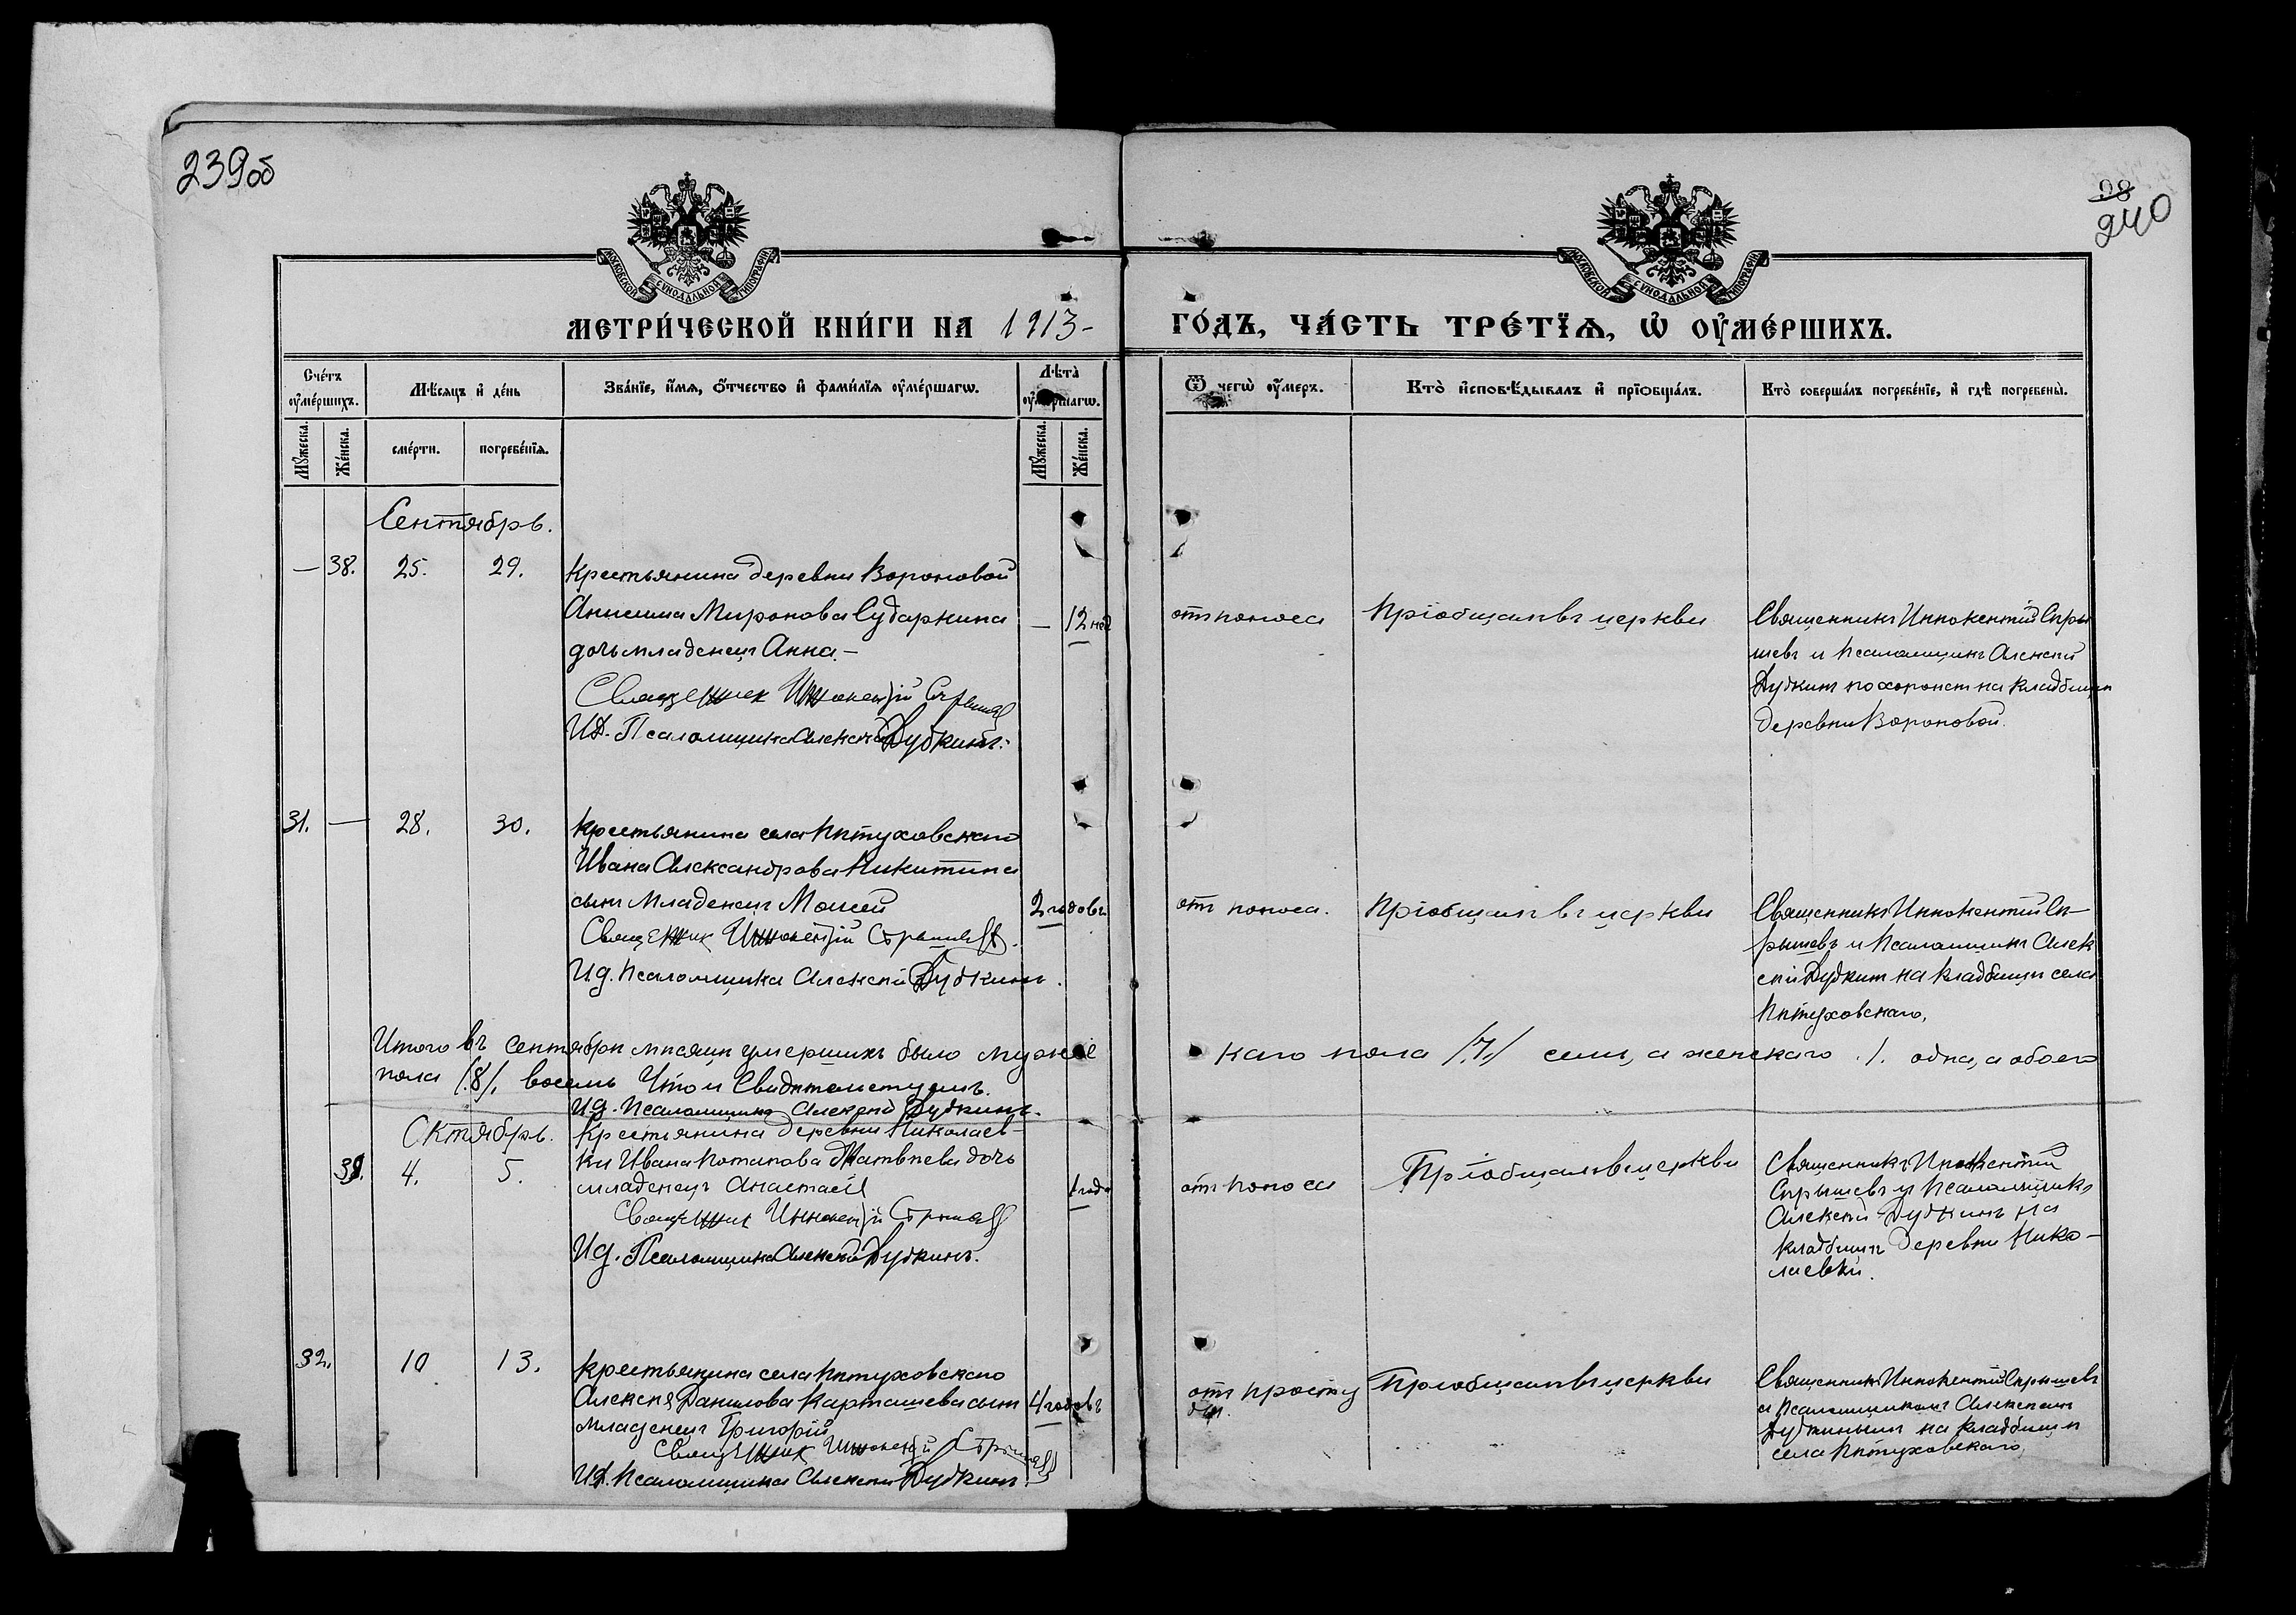 239об
98
240
МОСКОВСКОЙ СѴНОДАЛЬНОЙ ТИПОГРАФІИ
МОСКОВСКОЙ СѴНОДАЛЬНОЙ ТИПОГРАФІИ
МЕТРИ́ЧЕСКОЙ КНИ́ГИ НА 1913- ГО́ДЪ, ЧА́СТЬ ТРЕ́ТЇѦ, Ѿ ОУ҆МЕ́РШИХЪ.
Сче́тъ оу҆ме́ршихъ.
Мѣ́сяцъ и҆ де́нь
Зва́нїе, и҆́мѧ, ѻ҆́тчество и҆ фами́лїѧ оу҆ме́ршагѡ.
Лѣ́та оу҆ме́ршагѡ.
Ѿ чегѡ̀ оу҆́меръ.
Кто̀ и҆сповѣ́дывалъ и҆ прїѡбща́лъ.
Кто̀ соверша́лъ погребе́нїе, и҆ гдѣ̀ погребены̀.
Мꙋ́жеска.
Же́нска.
сме́рти.
погребе́нїѧ.
Мꙋ́жеска.
Же́нска.
Сентябрь.
— 38. 25. 29. Крестьянина деревни Вороновой
Анисима Миронова Сударкина — 12 нед
дочь младенецъ Анна.—
Священник Иннокентій
И.Д. Псаломщика Алексѣй Дудкинъ.
отъ поноса
Пріобщалъ въ церкви
Священникъ Иннокентій Спры
шевъ и Псаломщикъ Алексѣй
Дудкинъ похоронена на кладбищѣ
деревни Вороновой.
31. — 28. 30. Крестьянина села Пѣтуховскаго
Ивана Александрова Никитина
сынъ младенецъ Моисей 2 годовъ
Священник Иннокентій
И.д. Псаломщика Алексѣй Дудкинъ.
отъ поноса.
Пріобщалъ въ церкви
Священникъ Иннокентій Сп—
рышевъ и Псаломщикъ Алек
сѣй Дудкинъ на кладбищѣ села
Пѣтуховскаго.
Итого въ Сентябрѣ мѣсяцѣ умершихъ было мужес каго пола /.7./ семь, а женскаго .1. одна, а обоего
пола /.8/. восемь Что и Свидѣтельствуемъ.
И.д. Псаломщика Алексѣй Дудкинъ.
Октябрь. Крестьянина деревни Николаев-
39. 4. 5. ки Ивана Потапова Матвѣева дочь
младенецъ Анастасія 1 года
Священник Иннокентій
И.д. Псаломщика Алексѣй Дудкинъ.
отъ поноса
Пріобщалъ въ церкви
Священникъ Иннокентій
Спрышевъ и Псаломщикъ
Алексѣй Дудкинъ на
кладбищѣ деревни Нико-
лаевки.
32. 10 13. Крестьянина села Пѣтуховскаго
Алексѣя Данилова Карташева сынъ 4 годовъ
младенецъ Григорій
Священник Иннокентій
И.Д. Псаломщика Алексѣй Дудкинъ.
отъ просту
ды.
Пріобщалъ въ церкви
Священникъ Иннокентій Спрышевъ
и Псаломщикомъ Алексѣемъ
Дудкинымъ на кладбищѣ
села Пѣтуховскаго